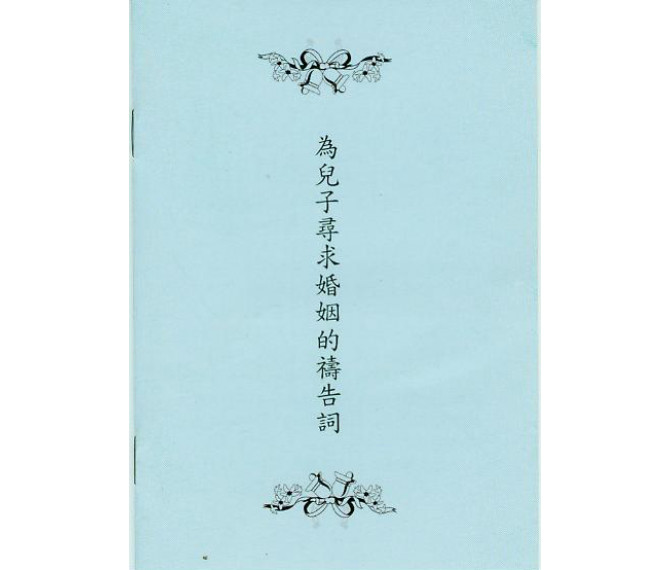 為兒子尋求婚姻的禱告詞